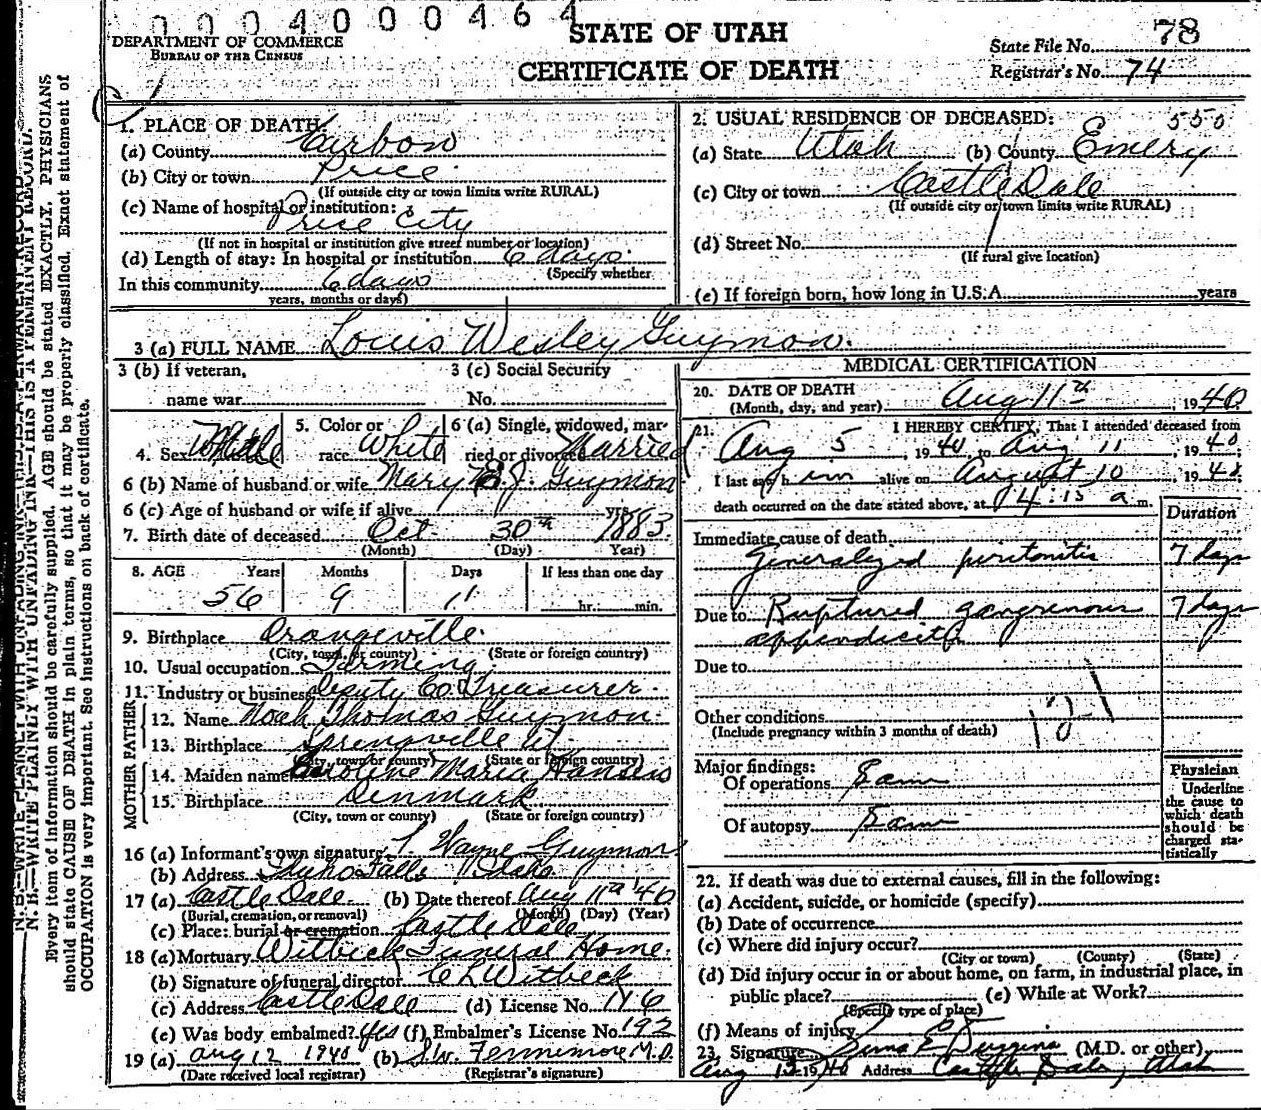 0 0 0 4 0 0 0 4 6 4
DEPARTMENT OF COMMERCE
BUREAU OF THE CENSUS
STATE OF UTAH
CERTIFICATE OF DEATH
State File No. 78
Registrar's No. 74
N. B.—WRITE PLAINLY WITH UNFADING INK—THIS IS A PERMANENT RECORD.
Every item of information should be carefully supplied. AGE should be stated EXACTLY. PHYSICIANS
should state CAUSE OF DEATH in plain terms, so that it may be properly classified. Exact statement of
OCCUPATION is very important. See instructions on back of certificate.
1. PLACE OF DEATH
(a) County Carbon
(b) City or town Price
(If outside city or town limits write RURAL)
(c) Name of hospital or institution:
Price City
(If not in hospital or institution give street number or location)
(d) Length of stay: In hospital or institution 6 days
(Specify whether
In this community 6 days
years, months or days)
2. USUAL RESIDENCE OF DECEASED: 550
(a) State Utah (b) County Emery
(c) City or town Castle Dale
(If outside city or town limits write RURAL)
(d) Street No.
(If rural give location)
(e) If foreign born, how long in U.S.A. years
3 (a) FULL NAME Louis Wesley Guymon.
3 (b) If veteran,
name war
3 (c) Social Security
No.
4. Sex Male
5. Color or
race White
6 (a) Single, widowed, mar-
ried or divorced Married
6 (b) Name of husband or wife Mary Guymon
6 (c) Age of husband or wife if alive yrs.
7. Birth date of deceased Oct 30th 1883
(Month) (Day) Year)
8. AGE Years Months Days If less than one day
56 9 11 hr. min.
9. Birthplace Orangeville
(City, town, or county) (State or foreign country)
10. Usual occupation Farming
11. Industry or business Deputy Co. Treasurer
FATHER
12. Name Noah Thomas Guymon
13. Birthplace Springville Ut
(City, town or county) (State or foreign country)
MOTHER
14. Maiden name Caroline Maria Hansen
15. Birthplace Denmark
(City, town or county) (State or foreign country)
16 (a) Informant's own signature Wayne Guymon
(b) Address Idaho Falls Idaho
17 (a) Castle Dale (b) Date thereof Aug 11th 40
(Burial, cremation, or removal) (Month) (Day) (Year)
(c) Place: burial or cremation Castle Dale
18 (a) Mortuary Witbeck Funeral Home
(b) Signature of funeral director C L Witbeck
(c) Address Castle Dale (d) License No. 116
(e) Was body embalmed? Yes (f) Embalmer's License No. 192
19 (a) Aug 12 1940 (b) Fennemore M.D.
(Date received local registrar) (Registrar's signature)
MEDICAL CERTIFICATION
20. DATE OF DEATH
(Month, day, and year) Aug 11th, 1940
21. I HEREBY CERTIFY, That I attended deceased from
Aug 5, 1940, to Aug 11, 1940;
I last saw him alive on August 10, 1940;
death occurred on the date stated above, at 4:15 a m.
Duration
Immediate cause of death
Generalyzed peritonitis 7 days
Due to Ruptured gangrenous 7 days
appendicitis
Due to
Other conditions
(Include pregnancy within 3 months of death)
121
Major findings:
Of operations Same
Of autopsy Same
Physician
Underline
the cause to
which death
should be
charged sta-
tistically
22. If death was due to external causes, fill in the following:
(a) Accident, suicide, or homicide (specify)
(b) Date of occurrence
(c) Where did injury occur?
(City or town) (County) (State)
(d) Did injury occur in or about home, on farm, in industrial place, in
public place? (e) While at Work?
(Specify type of place)
(f) Means of injury
23. Signature (M.D. or other)
Aug 12 1940 Address Castle Dale, Utah